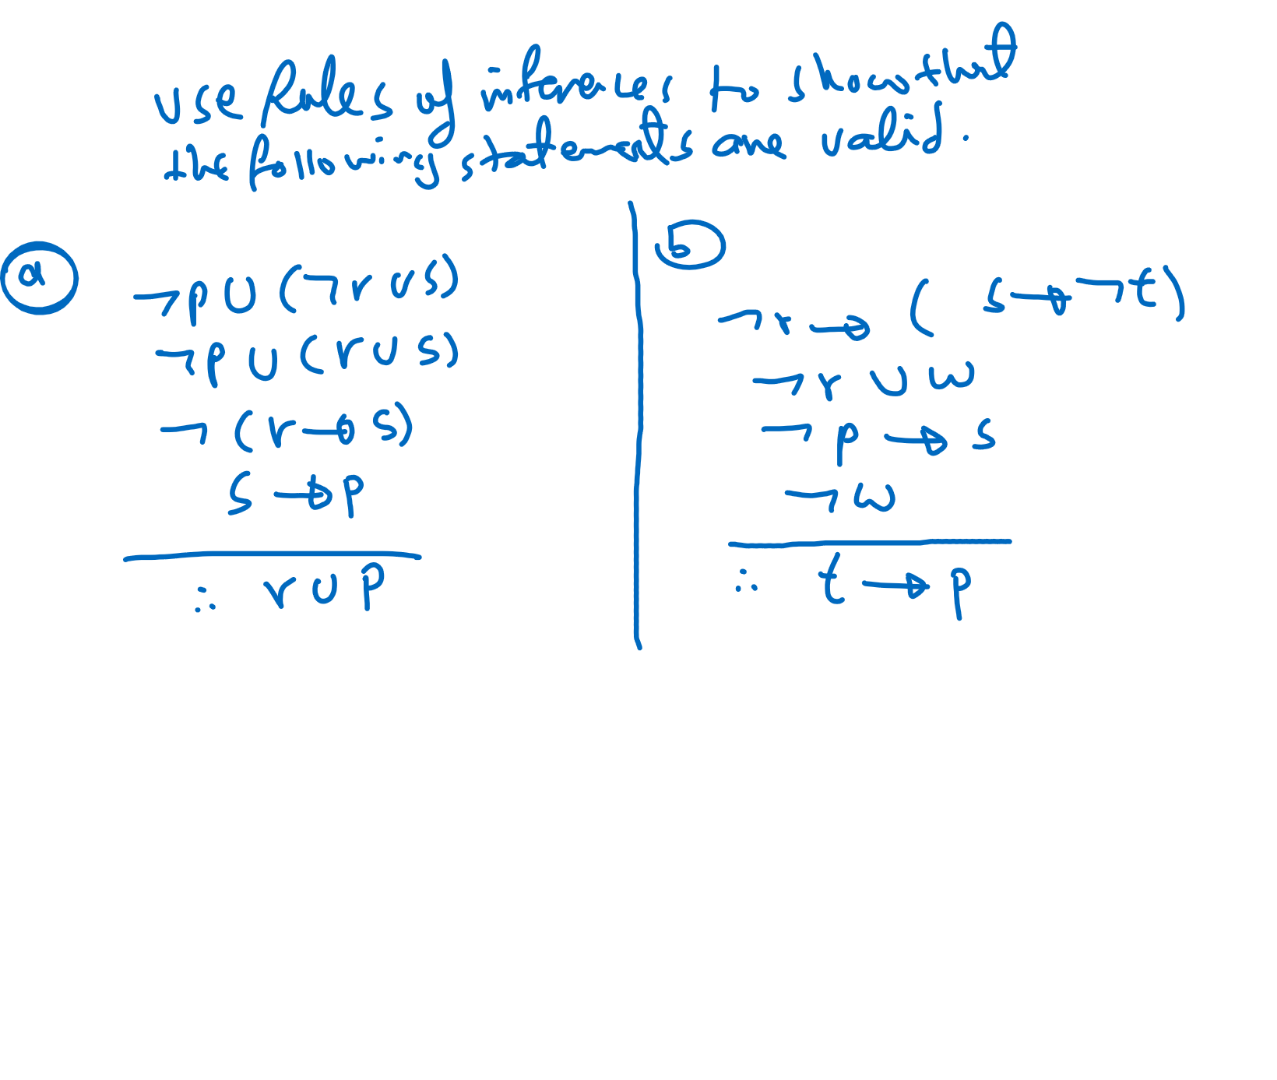 use Rules of inferences to show that
the following statements are valid.
a
¬p ∪ (¬r ∪ s)
¬p ∪ (r ∪ s)
¬(r → s)
s → p
∴ r ∪ p
b
¬r → (s → ¬t)
¬r ∪ w
¬p → s
¬w
∴ t → p